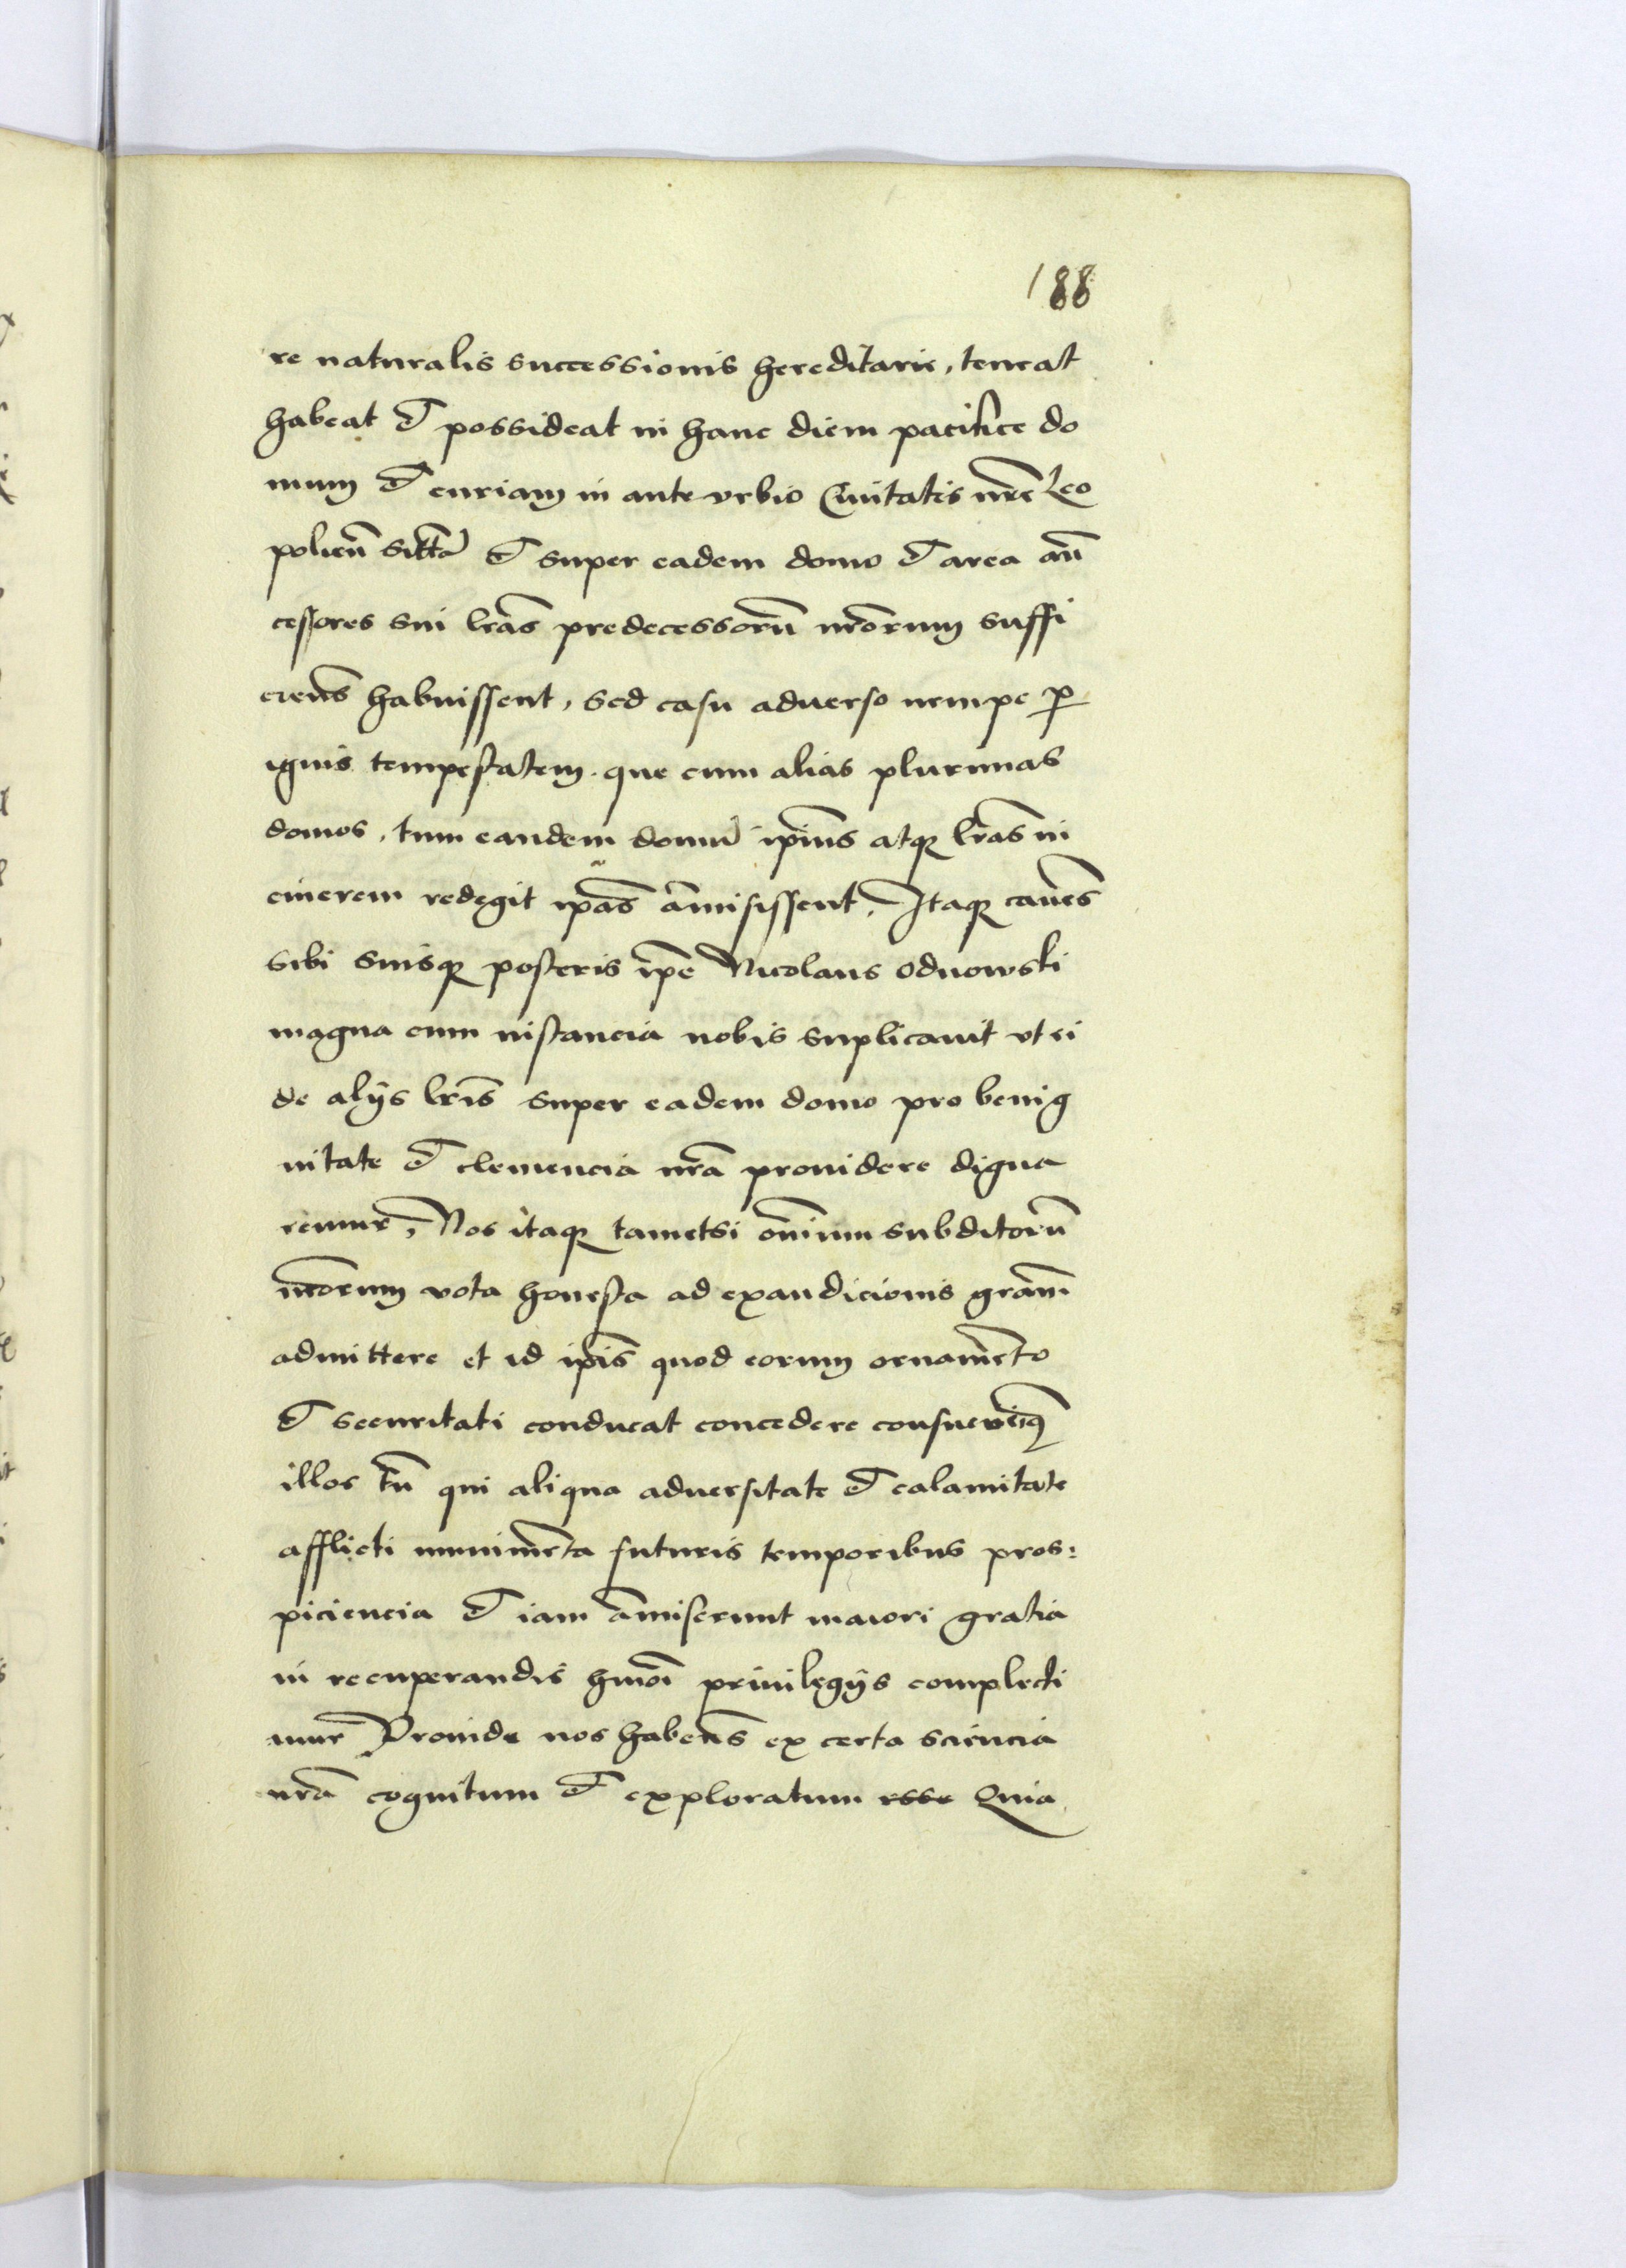 188
re naturalis successionis hereditarie, teneat
habeat et possideat in hanc diem pacifice do
mum et curiam in ante vrbio Ciuitatis nr̃e Leo
polien̄ sittā et super eadem domo et area an̄
cessores sui lr̃as predecessorū nr̃orum suffi
cien̄s habuissent, sed casu aduerso nempe ꝑ
ignis tempestatem. que cum alias plurimas
domos, tum eandem domū ip̄ius atqꝫ lr̃as in
cinerem redegit ip̄as am̄isissent, Itaqꝫ caueñs
sibi suisqꝫ posteris ip̄e Nicolaus Odnowski
magna cum instancia nobis suplicauit vt ei
de alijs lr̃is super eadem domo pro benig
nitate et clemencia nr̃a prouidere digna
remur, Nos itaqꝫ tametsi om̄ium subditorū
nr̃orum vota honesta ad exaudicionis gr̃am
admittere et id ip̄is quod eorum ornamēto
et securitati conducat concedere consueuerimꝰ
illos tn̄ qui aliqua aduersitate et calamitate
afflicti munimēta futuris temporibus pros:
piciencia et iam am̄iserunt maiori gratia
in recuperandis hmōi priuilegijs complecti
mur Proinde nos habeñs ex certa sciencia
nr̃a cognitum et exploratum esse Quia